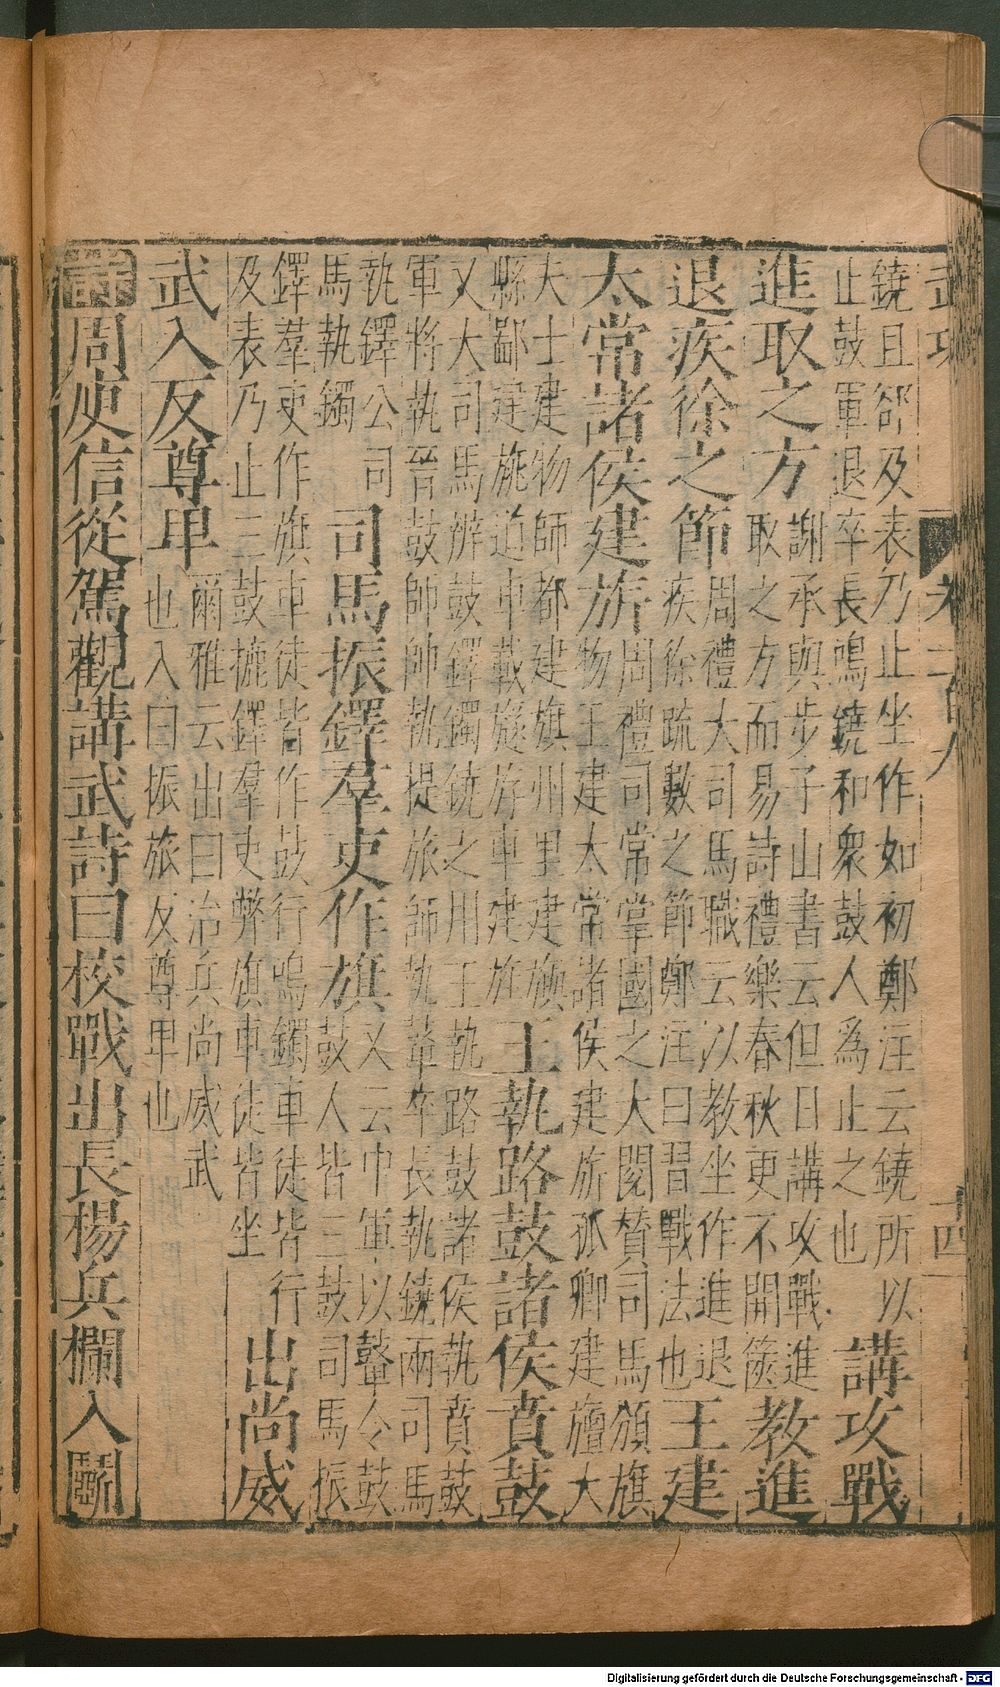 武功 卷一百八 十四
鐃且郤及表乃止坐作如初鄭注云鐃所以
止鼓軍退卒長鳴鐃和衆鼓人為止之也
講攻戰
進取之方
謝承與步子山書云但日講攻戰進
取之方而易詩禮樂春秋更不開篋
教進
退疾徐之節
周禮大司馬職云以教坐作進退
疾徐疏數之節鄭注曰習戰法也
王建
太常諸侯建旂
周禮司常掌國之大閱賛司馬頒旗
物王建太常諸侯建旂孤卿建旜大
夫士建物師都建旗州里建旟
縣鄙建旐道車載旞斿車建旌
王執路鼓諸侯賁鼓
又大司馬辨鼓鐸鐲鐃之用王執路鼓諸侯執賁鼓
軍將執晉鼓師帥執提旅師執鼙卒長執鐃兩司馬
執鐸公司
馬執鐲
司馬振鐸羣吏作旗
又云中軍以鼙令鼓
鼓人皆三鼓司馬振
鐸羣吏作旗車徒皆作鼓行鳴鐲車徒皆行
及表乃止三鼓摝鐸羣吏弊旗車徒皆坐
出尚威
武入反尊卑
爾雅云出曰治兵尚威武
也入曰振旅反尊卑也
詩周庾信從駕觀講武詩曰校戰出長楊兵欄入鬭
Digitalisierung gefördert durch die Deutsche Forschungsgemeinschaft - DFG